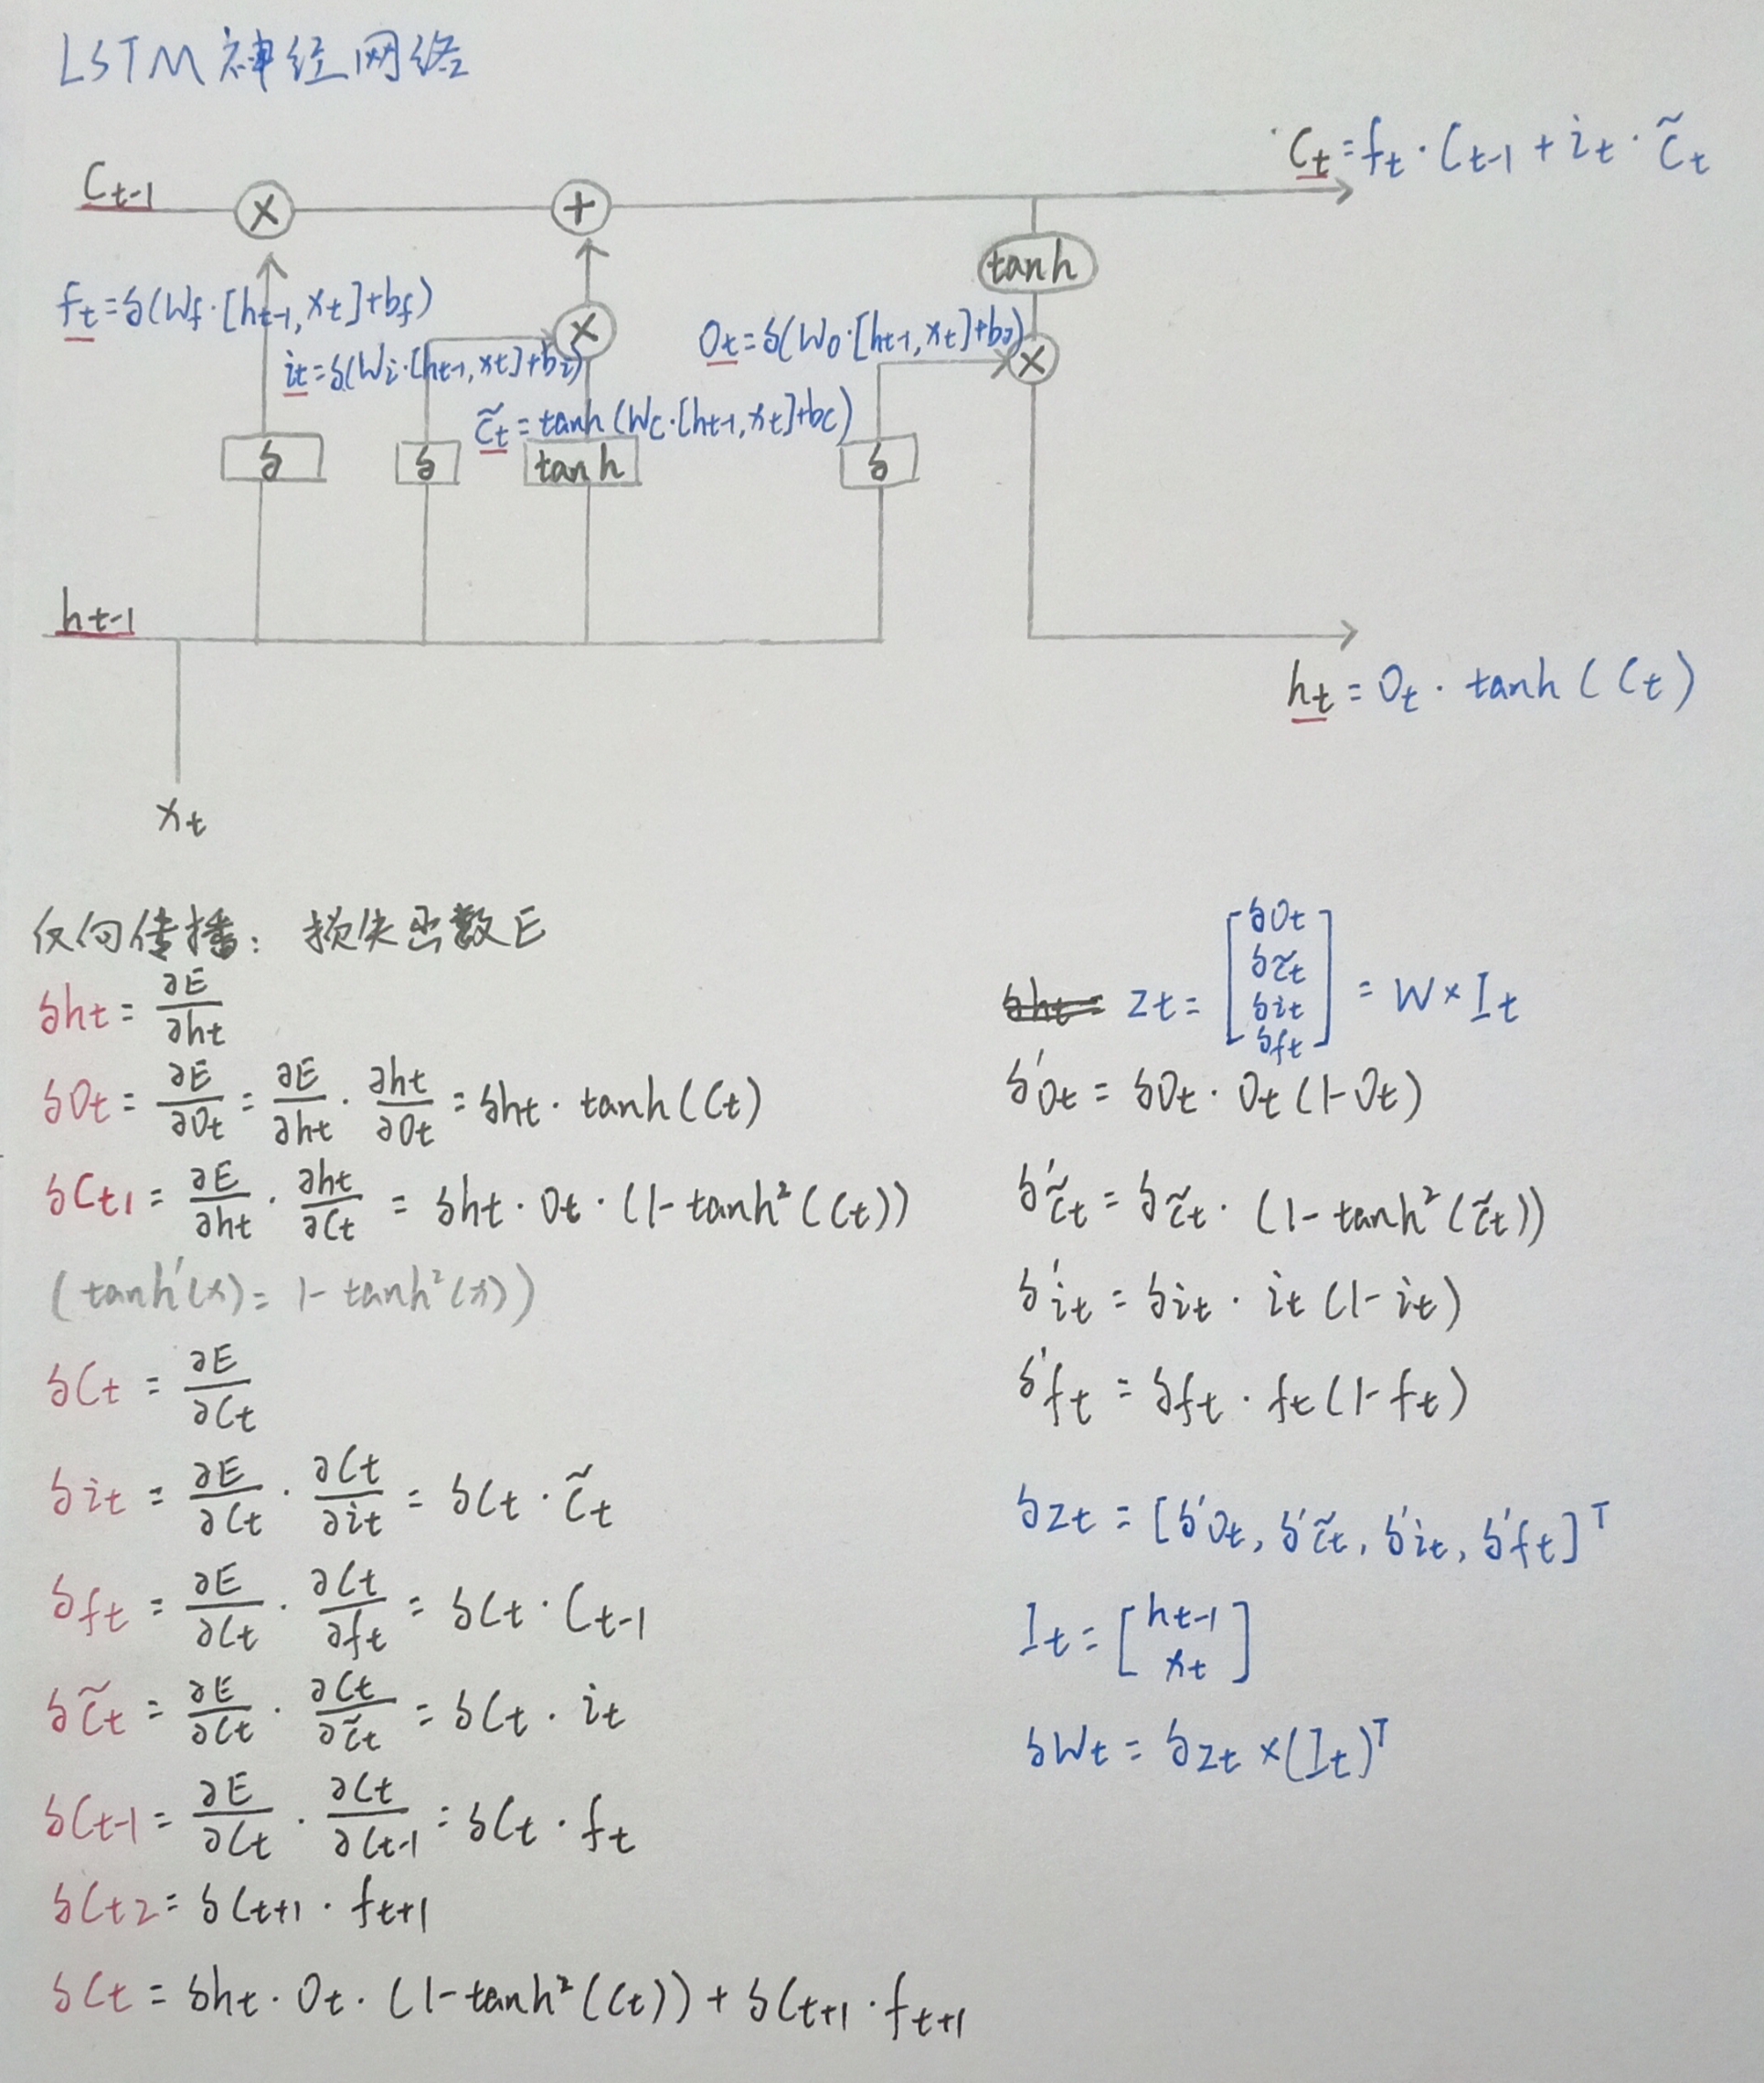 LSTM神经网络
C_{t-1}
C_t = f_t · C_{t-1} + i_t · \tilde{C}_t
×
+
tanh
f_t = δ(W_f · [h_{t-1}, x_t] + b_f)
×
i_t = δ(W_i · [h_{t-1}, x_t] + b_i)
O_t = δ(W_o · [h_{t-1}, x_t] + b_o)
×
\tilde{C}_t = tanh(W_C · [h_{t-1}, x_t] + b_C)
δ
δ
tanh
δ
h_{t-1}
h_t = O_t · tanh(C_t)
x_t
反向传播: 损失函数E
δh_t = ∂E/∂h_t
δO_t = ∂E/∂O_t = ∂E/∂h_t · ∂h_t/∂O_t = δh_t · tanh(C_t)
δC_{t1} = ∂E/∂h_t · ∂h_t/∂C_t = δh_t · O_t · (1 - tanh²(C_t))
(tanh'(x) = 1 - tanh²(x))
δC_t = ∂E/∂C_t
δi_t = ∂E/∂C_t · ∂C_t/∂i_t = δC_t · \tilde{C}_t
δf_t = ∂E/∂C_t · ∂C_t/∂f_t = δC_t · C_{t-1}
δ\tilde{C}_t = ∂E/∂C_t · ∂C_t/∂\tilde{C}_t = δC_t · i_t
δC_{t-1} = ∂E/∂C_t · ∂C_t/∂C_{t-1} = δC_t · f_t
δC_{t2} = δC_{t+1} · f_{t+1}
δC_t = δh_t · O_t · (1 - tanh²(C_t)) + δC_{t+1} · f_{t+1}
δh_t = z_t = [δO_t δ\tilde{C}_t δi_t δf_t] = W × I_t
δ'O_t = δO_t · O_t(1 - O_t)
δ'\tilde{C}_t = δ\tilde{C}_t · (1 - tanh²(\tilde{C}_t))
δ'i_t = δi_t · i_t(1 - i_t)
δ'f_t = δf_t · f_t(1 - f_t)
δz_t = [δ'O_t, δ'\tilde{C}_t, δ'i_t, δ'f_t]^T
I_t = [h_{t-1} x_t]
δW_t = δz_t × (I_t)^T